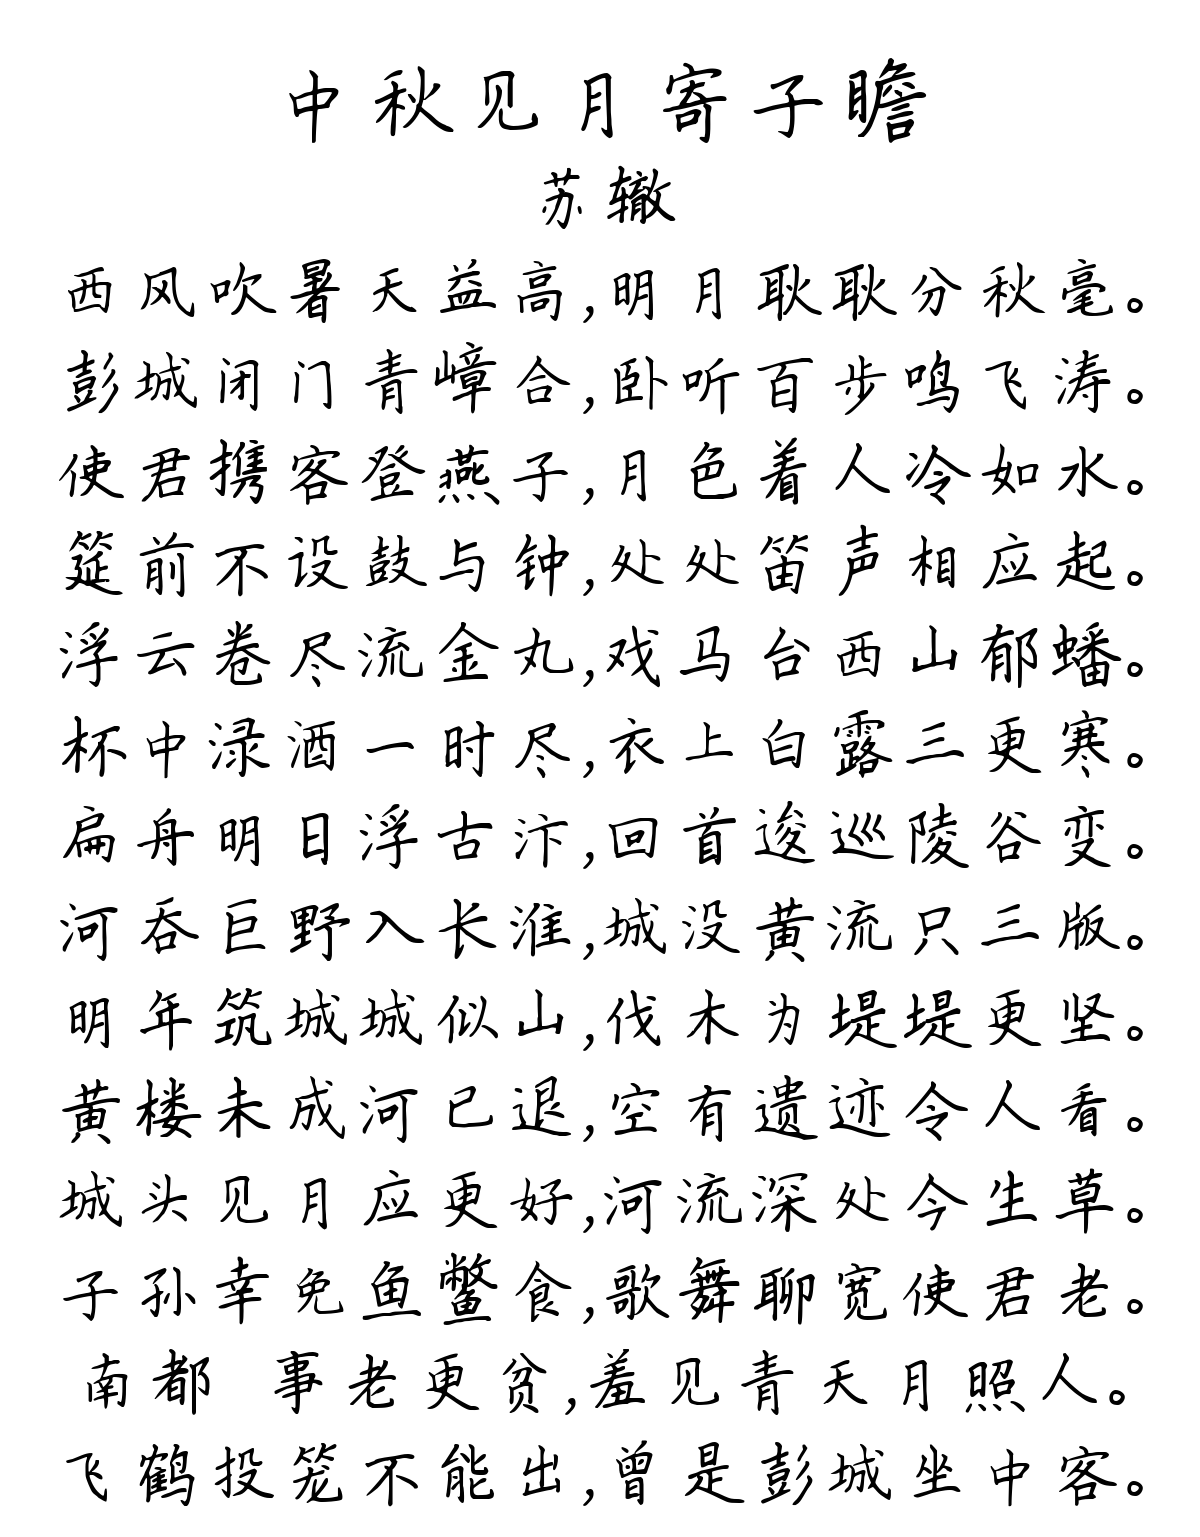 中秋见月寄子瞻
苏辙
西风吹暑天益高,明月耿耿分秋毫。
彭城闭门青嶂合,卧听百步鸣飞涛。
使君携客登燕子,月色着人冷如水。
筵前不设鼓与钟,处处笛声相应起。
浮云卷尽流金丸,戏马台西山郁蟠。
杯中渌酒一时尽,衣上白露三更寒。
扁舟明日浮古汴,回首逡巡陵谷变。
河吞巨野入长淮,城没黄流只三版。
明年筑城城似山,伐木为堤堤更坚。
黄楼未成河已退,空有遗迹令人看。
城头见月应更好,河流深处今生草。
子孙幸免鱼鳖食,歌舞聊宽使君老。
南都 事老更贫,羞见青天月照人。
飞鹤投笼不能出,曾是彭城坐中客。